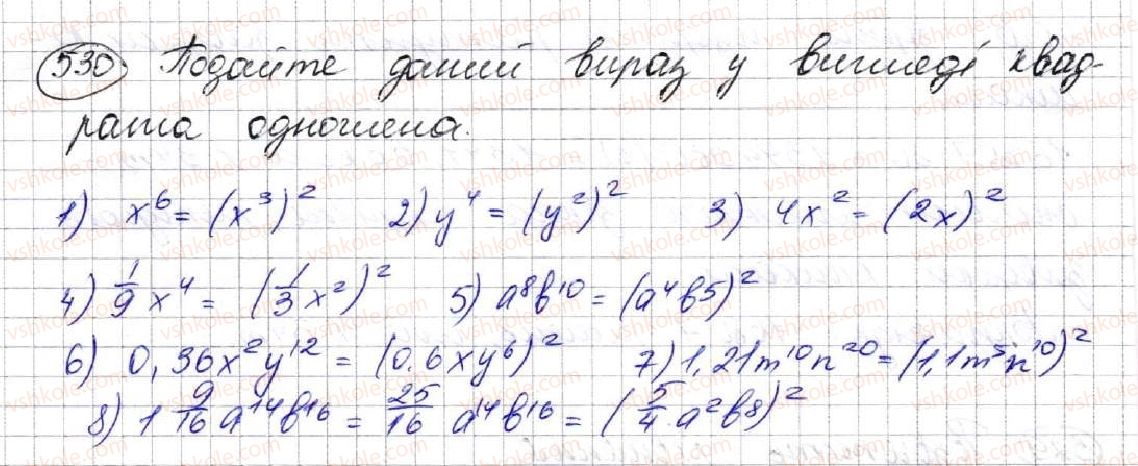 530 Подайте даний вираз у вигляді квад-
рата одночлена.
1) x⁶ = (x³)² 2) y⁴ = (y²)² 3) 4x² = (2x)²
4) 1/9 x⁴ = (1/3 x²)² 5) a⁸b¹⁰ = (a⁴b⁵)²
6) 0,36x²y¹² = (0.6xy⁶)² 7) 1,21m¹⁰n²⁰ = (1,1m⁵n¹⁰)²
8) 1 9/16 a¹⁴b¹⁶ = 25/16 a¹⁴b¹⁶ = (5/4 a²b⁸)²